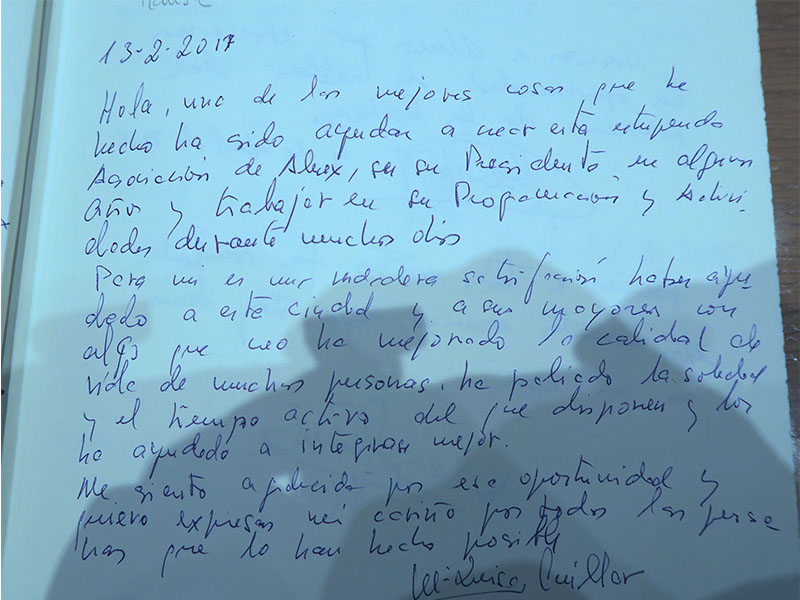 13-2-2017
Hola, una de las mejores cosas que he
hecho ha sido ayudar a nacer esta estupenda
Asociación de, ser su Presidenta en algunos
años y trabajar en su Programación y Activi-
dades durante muchos días
Para mi es una verdadera satisfacción haber ayu-
dado a esta ciudad y a sus mayores con
algo que creo ha mejorado la calidad de
vida de muchas personas, ha paliado la soledad
y el tiempo activo del que disponen y los
ha ayudado a integrarse mejor.
Me siento agradecida por esa oportunidad y
quiero expresar mi cariño por todas las perso
nas que lo han hecho posible
Mª Luisa Cuillar